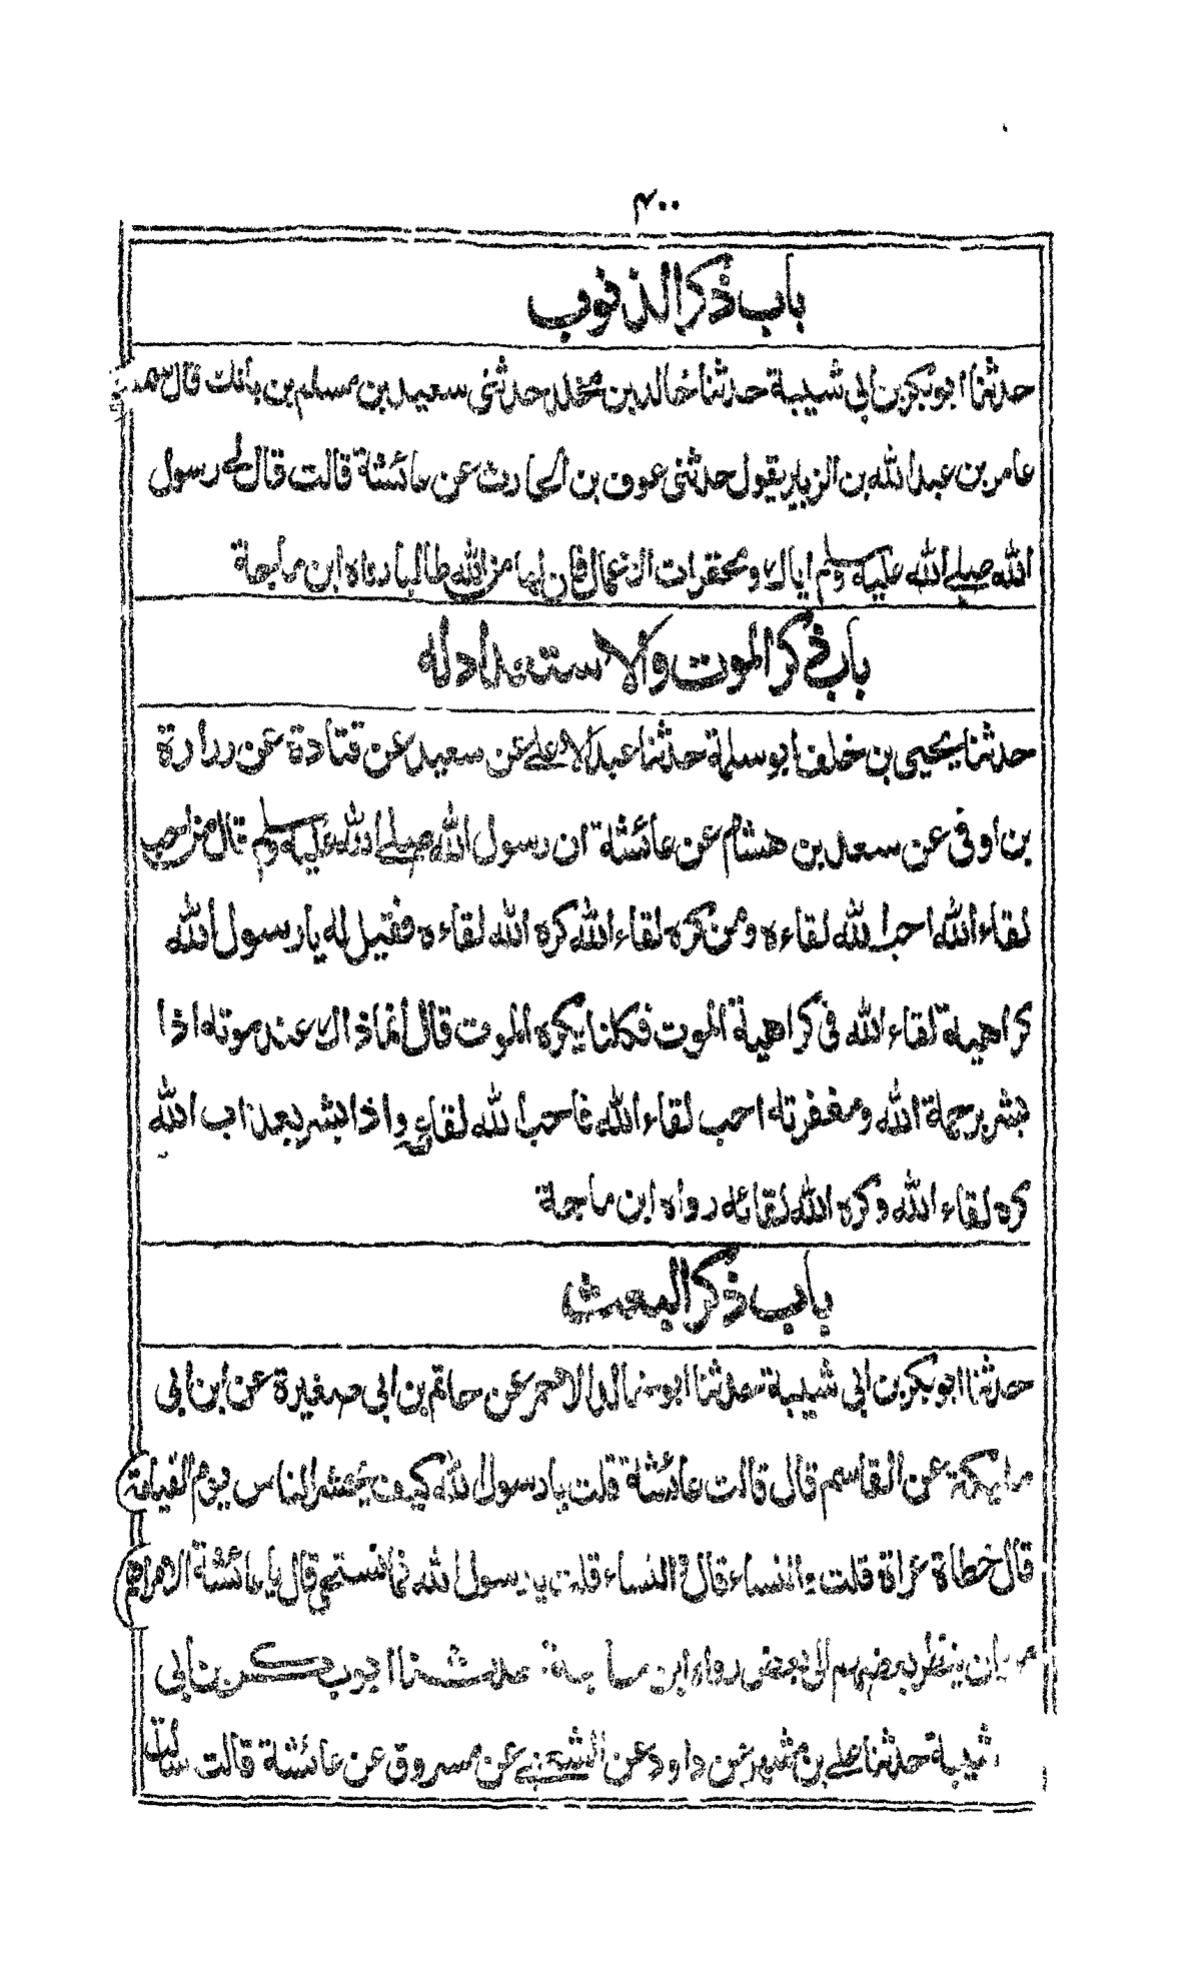 ۴۰۰
باب ذكر الذنوب
حدثنا ابوبكر بن ابي شيبة حدثنا خالد بن مخلد حدثني سعيد بن مسلم بن بانك قال سمعت
عامر بن عبد الله بن الزبير يقول حدثني عوف بن الحارث عن عائشة قالت قال لي رسول
الله صلے الله عليه وسلم اياك ومحقرات الاعمال فان لها من الله طالبا رواه ابن ماجة
باب ذكر الموت والاستعداد له
حدثنا يحيى بن خلف ابو سلمة حدثنا عبد الاعلے عن سعيد عن قتادة عن زرارة
بن اوفى عن سعد بن هشام عن عائشة ان رسول الله صلے الله عليه وسلم قال من احب
لقاء الله احب الله لقاءه ومن كره لقاء الله كره الله لقاءه فقيل له يا رسول الله
كراهية لقاء الله في كراهية الموت فكلنا يكره الموت قال انما ذاك عند موته اذا
بشر برحمة الله ومغفرته احب لقاء الله فاحب الله لقاءه واذا بشر بعذاب الله
كره لقاء الله وكره الله لقائه رواه ابن ماجة
باب ذكر البعث
حدثنا ابوبكر بن ابي شيبة حدثنا ابو خالد الاحمر عن حاتم بن ابي صغيرة عن ابن ابي
مليكة عن القاسم قال قالت عائشة قلت يا رسول الله كيف يحشر الناس يوم القيامة
قال حفاة عراة قلت والنساء قال والنساء قلت يا رسول الله فما نستحي قال يا عائشة الامر اهم
من ان ينظر بعضهم الى بعض رواه ابن ماجة حدثنا ابوبكر بن ابي
شيبة حدثنا علے بن مسهر عن داود عن الشعبے عن مسروق عن عائشة قالت سالت